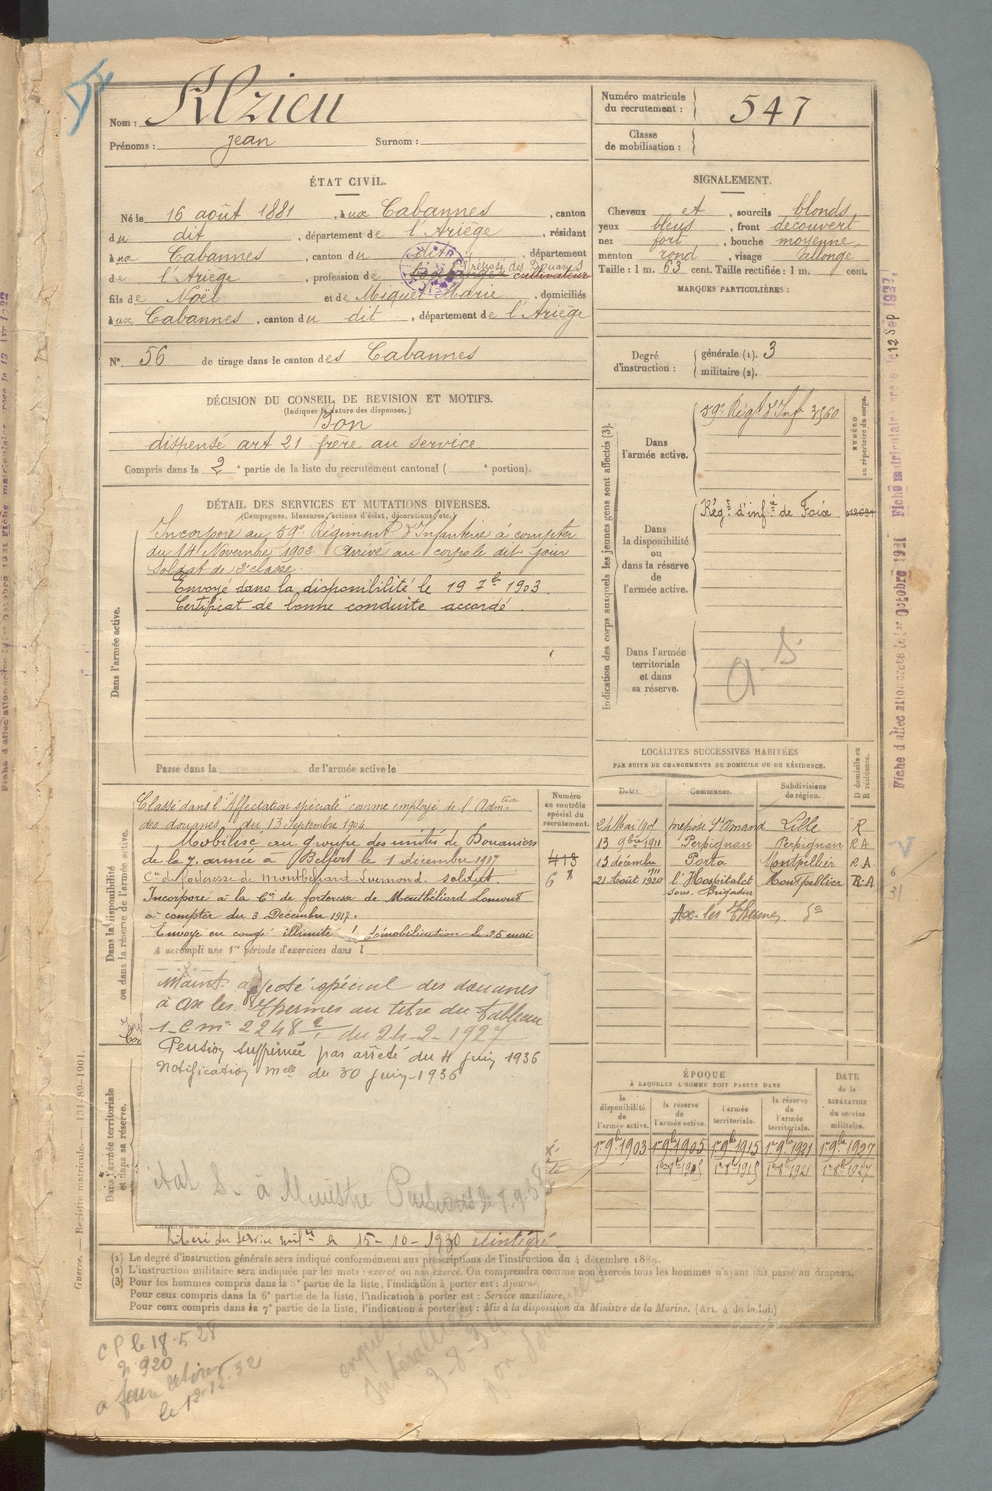 Nom : Alzieu
Prénoms : Jean Surnom :
Numéro matricule du recrutement : 547
Classe de mobilisation :
ÉTAT CIVIL.
Né le 16 août 1881, à ux Cabannes, canton
du dit, département de l'Ariège, résidant
à ux Cabannes, canton du dit, département
de l'Ariège, profession de préposé des Douanes cultivateur
fils de Noël et de Miquel Marie, domiciliés
à ux Cabannes, canton du dit, département de l'Ariège
N° 56 de tirage dans le canton des Cabannes
SIGNALEMENT.
Cheveux et, sourcils blonds
yeux bleus, front découvert
nez fort, bouche moyenne
menton rond, visage allongé
Taille : 1 m. 63 cent. Taille rectifiée : 1 m. cent.
MARQUES PARTICULIÈRES :
Degré d'instruction : générale (1). 3
militaire (2).
DÉCISION DU CONSEIL DE REVISION ET MOTIFS.
(Indiquer la nature des dispenses.)
Bon
dispensé art 21 frère au service
Compris dans la 2e partie de la liste du recrutement cantonal ( e portion).
DÉTAIL DES SERVICES ET MUTATIONS DIVERSES.
(Campagnes, blessures, actions d'éclat, décorations, etc.)
Dans l'armée active.
Incorporé au 59e Régiment d'Infanterie à compter
du 14 Novembre 1902 Arrivé au corps le dit jour
Soldat de 2e classe.
Envoyé dans la disponibilité le 19 7bre 1903.
Certificat de bonne conduite accordé.
Passé dans la de l'armée active le
Indication des corps auxquels les jeunes gens sont affectés (3).
NUMÉRO au répertoire du corps.
Dans l'armée active.
59e Régt d'Inf 3560
Dans la disponibilité ou dans la réserve de l'armée active.
Régt d'infie de Foix
Dans l'armée territoriale et dans sa réserve.
a. s.
Dans la disponibilité ou dans la réserve de l'armée active.
Classé dans l'"Affectation spéciale" comme employé de l'Admon
des douanes du 13 Septembre 1904
Mobilisé au groupe des unités de Douaniers
de la 7e armée à Belfort le 1 décembre 1917
Cie de forteresse de Montbéliard Lomond. soldat.
Incorporé à la Cie de forteresse de Montbéliard Lomond
à compter du 3 Décembre 1917.
Envoyé en congé illimité démobilisation le 25 mai
A accompli une 1re période d'exercices dans l
Numéro au contrôle spécial du recrutement.
418
6
Maint affecté spécial des douanes
à Ax les Thermes au titre du tableau
1 C mn 2248 du 24-2-1927
Pension supprimée par arrêté du 4 juin 1936
Notification melle du 30 juin 1936
Dans l'armée territoriale et dans sa réserve.
Libéré du service milre le 15-10-1930 réintégré
LOCALITÉS SUCCESSIVES HABITÉES
PAR SUITE DE CHANGEMENTS DE DOMICILE OU DE RÉSIDENCE.
Dates. Communes. Subdivisions de région. D domicile ou R résidence.
St Amand Lille R
13 9bre 1911 Perpignan Perpignan R A
13 décembre 1911 Porta Montpellier R A
21 Août 1920 l'Hospitalet Montpellier R. A
Sous. Brigadier
Ax-les-Thermes do
ÉPOQUE
À LAQUELLE L'HOMME DOIT PASSER DANS
la disponibilité de l'armée active. la réserve de l'armée active. l'armée territoriale. la réserve de l'armée territoriale. DATE de la LIBÉRATION du service militaire.
1er 9bre 1903 1er 9bre 1905 1er 9bre 1915 1er 9bre 1921 1er 9bre 1927
(1) Le degré d'instruction générale sera indiqué conformément aux prescriptions de l'instruction du 4 décembre 1889.
(2) L'instruction militaire sera indiquée par les mots : exercé ou non exercé. On comprendra comme non exercés tous les hommes n'ayant pas passé au drapeau.
(3) Pour les hommes compris dans la 5e partie de la liste, l'indication à porter est : Ajourné.
Pour ceux compris dans la 6e partie de la liste, l'indication à porter est : Service auxiliaire.
Pour ceux compris dans la 7e partie de la liste, l'indication à porter est : Mis à la disposition du Ministre de la Marine. (Art. 4 de la loi.)
CP le 18-5-28
n 920
le 12-12-32
3-8-34
Guerre. — Registre matricule. — 131-89-1901.
Fiche d'affectation créée le 1er Octobre 1921
Fiche matriculaire créée le 12 Sep 1932